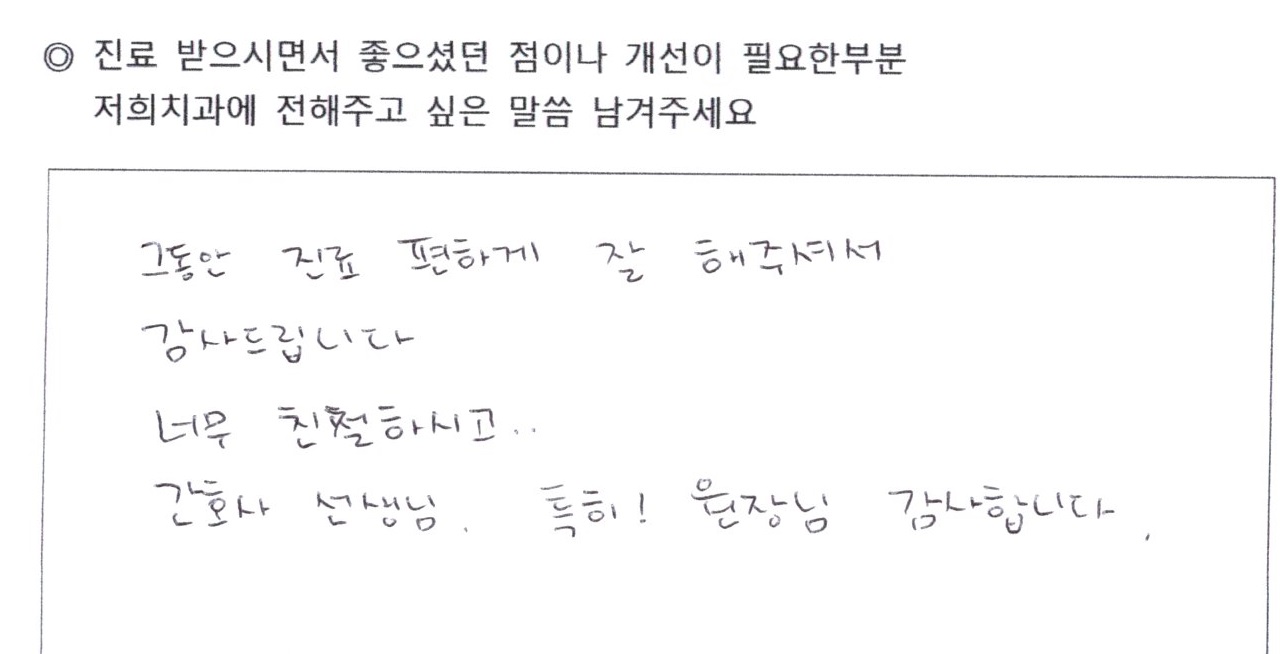 ◎ 진료 받으시면서 좋으셨던 점이나 개선이 필요한부분
저희치과에 전해주고 싶은 말씀 남겨주세요
그동안 진료 편하게 잘 해주셔서
감사드립니다
너무 친절하시고..
간호사 선생님. 특히! 원장님 감사합니다.